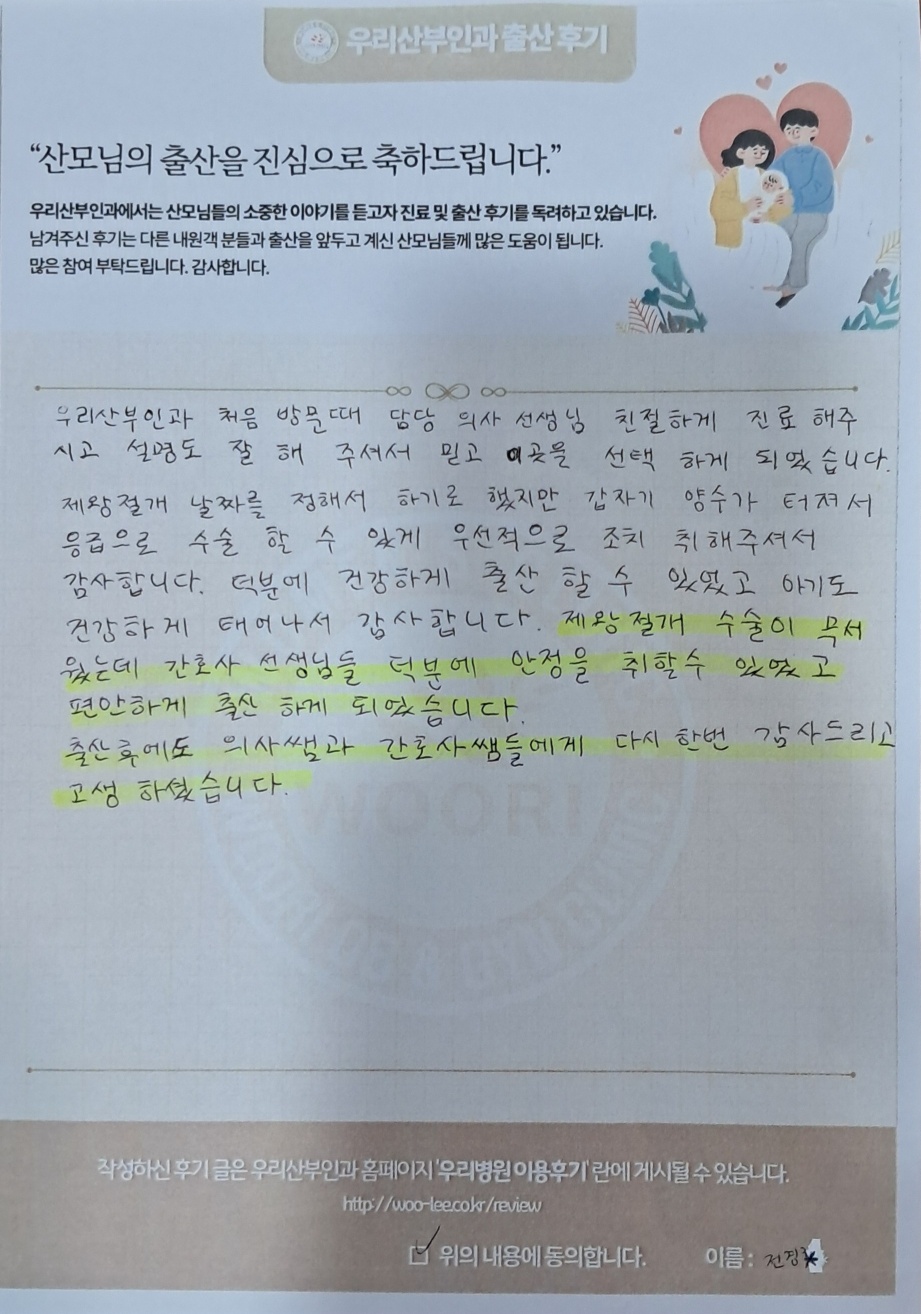 우리산부인과 출산 후기
“산모님의 출산을 진심으로 축하드립니다.”
우리산부인과에서는 산모님들의 소중한 이야기를 듣고자 진료 및 출산 후기를 독려하고 있습니다.
남겨주신 후기는 다른 내원객 분들과 출산을 앞두고 계신 산모님들께 많은 도움이 됩니다.
많은 참여 부탁드립니다. 감사합니다.
우리산부인과 처음 방문때 담당 의사 선생님 친절하게 진료 해주
시고 설명도 잘 해 주셔서 믿고 이곳을 선택 하게 되었습니다.
제왕절개 날짜를 정해서 하기로 했지만 갑자기 양수가 터져서
응급으로 수술 할 수 있게 우선적으로 조치 취해주셔서
감사합니다. 덕분에 건강하게 출산 할 수 있었고 아기도
건강하게 태어나서 감사합니다. 제왕절개 수술이 무서
웠는데 간호사 선생님들 덕분에 안정을 취할수 있었고
편안하게 출산 하게 되었습니다.
출산후에도 의사쌤과 간호사쌤들에게 다시 한번 감사드리고
고생 하셨습니다.
WOORI
WOORI OB & GYN CLINIC
작성하신 후기 글은 우리산부인과 홈페이지 '우리병원 이용후기' 란에 게시될 수 있습니다.
http://woo-lee.co.kr/review
위의 내용에 동의합니다. 이름 :